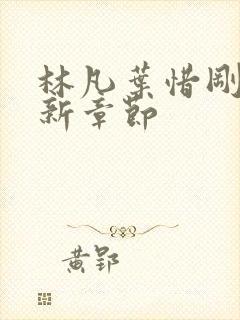 林凡葉惜剛
新章節
黄郢